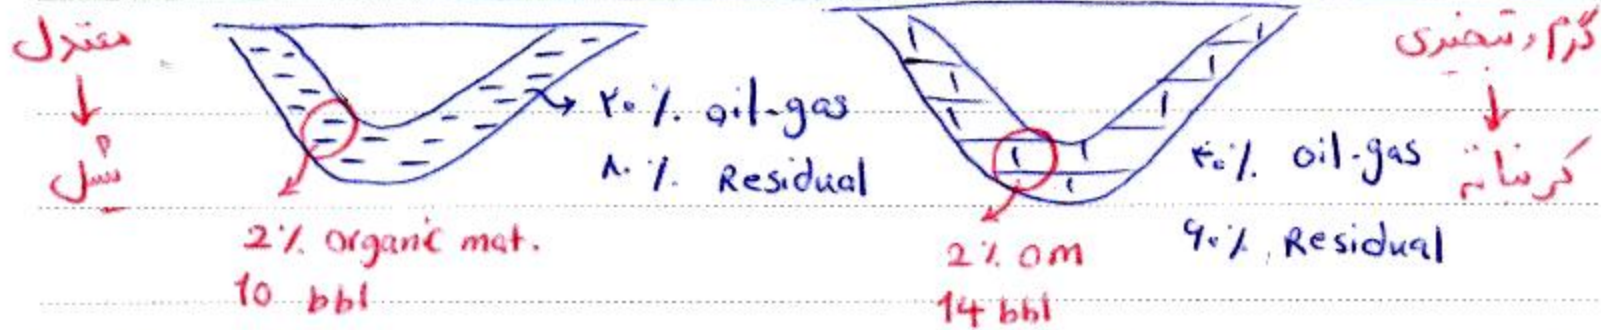 معتدل
↓
شیل
۲۰٪ oil-gas
۸۰٪ Residual
2٪ organic mat.
10 bbl
گرم و تبخیری
↓
کربناته
۴۰٪ oil-gas
۶۰٪ Residual
2٪ OM
14 bbl